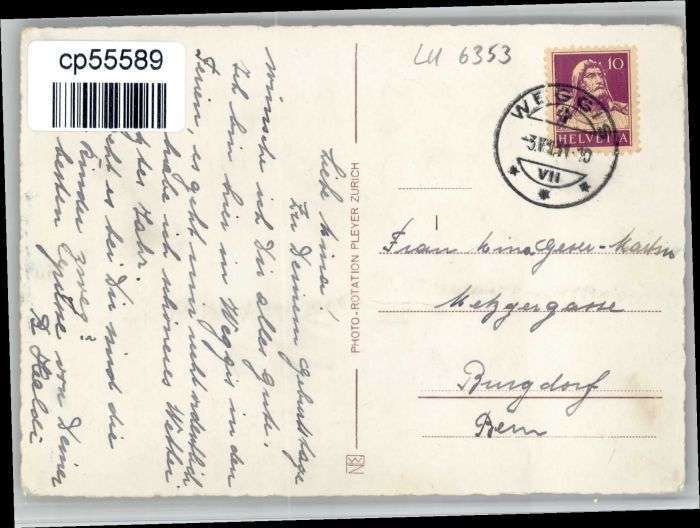 cp55589
LU 6353
10
HELVETIA
WEGGIS
VII
Liebe Mina!
Zu Deinem Geburtstage
wünsche ich Dir alles gute.
Ich bin hier in Weggis in den
Ferien, es geht mir recht ordentlich
habe ich schönes Wetter
Jahr.
es bei Dir und die
Kinder
besten Grüsse von Deiner
PHOTO-ROTATION PLEYER ZURICH
Frau Mina
Metzgergasse
Burgdorf
Bern